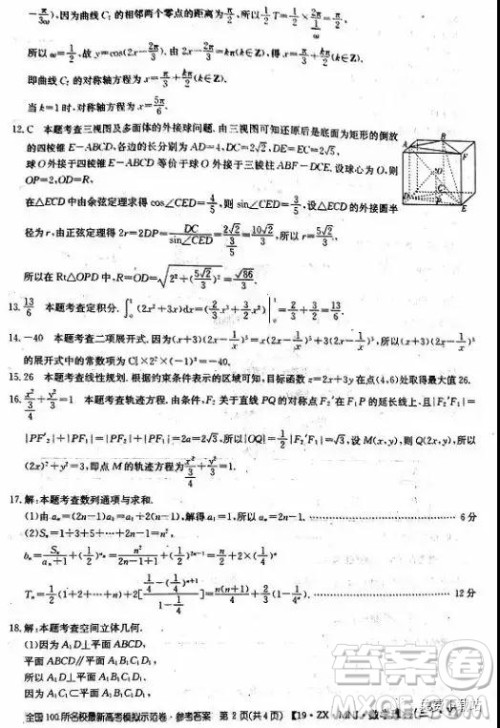 -π/(3ω)), 因为曲线C₂的相邻两个零点的距离为π/2, 所以
所以ω=1/2, 故 y=cos(2x-2π/3). 由2x-2π/3=kπ(k∈Z), 得x=π/3+kπ/2(k∈Z).
即曲线C₂的对称轴方程为
当k=1时, 对称轴方程为x=5π/6.
12. C 本题考查三视图及多面体的外接球问题. 由三视图可知还原后是底面为矩形的倒放
的四棱锥E-ABCD, 各边的长分别为AD=4, DC=2√2, DE=EC=2√5.
球O外接于四棱锥E-ABCD等价于球O外接于三棱柱ABF-DCE. 设球心为O, 则
OP=2, OD=R,
在△ECD中由余弦定理求得cos∠CED=4/5, 则sin∠CED=3/5, 设△ECD的外接圆半
径为r, 由正弦定理得2r=2DP=DC/sin∠CED=2√2/(3/5)=10√2/3, 所以r=5√2/3,
所以在Rt△OPD中, R=OD=√(2²+(5√2/3)²)=√86/3.
13. 13/6 本题考查定积分. ∫₀¹(2x²+3x)dx=(2/3x³+3/2x²)|₀¹=2/3+3/2=13/6.
14. -40 本题考查二项展开式. 因为(x+3)(2x-1/x)⁵=x(2x-1/x)⁵+3(2x-1/x)⁵, 所以(x+3)(2x-1/x)⁵
的展开式中的常数项为C₅³×2²×(-1)³=-40.
15. 26 本题考查线性规划. 根据约束条件表示的区域可知, 目标函数z=2x+3y在点(4,6)处取得最大值26.
16. x²/(3/4)+y²/3=1 本题考查轨迹方程. 由条件, F₂关于直线PQ的对称点F₂′在F₁P的延长线上, 且|F₂′F₁|=
|PF₂′|+|PF₁|=|PF₂|+|PF₁|=2a=2√3, 所以|OQ|=1/2|F₂′F₁|=√3, 设M(x,y), 则Q(2x,y), 所以
(2x)²+y²=3, 即点M的轨迹方程为x²/(3/4)+y²/3=1.
17. 解: 本题考查数列通项与求和.
(1)由aₙ=(2n-1)a₁=a₁+2(n-1), 解得a₁=1, 所以aₙ=2n-1. 6分
(2)Sₙ=1+3+5+…+(2n-1)=n²,
bₙ=Sₙ/(aₙ+1)+(1/2)^aₙ=n²/(2n-1+1)+(1/2)^(2n-1)=n/2+2×(1/4)ⁿ,
Tₙ=1/2(1+2+…+n)+2[(1/4-(1/4)^(n+1))/(1-1/4)]=n(n+1)/4+2/3(1-1/4ⁿ). 12分
18. 解: 本题考查空间立体几何.
(1)因为A₁D⊥平面ABCD,
平面ABCD∥平面A₁B₁C₁D₁,
所以A₁D⊥平面A₁B₁C₁D₁,
因为A₁D
全国100所名校最新高考模拟示范卷·参考答案 第2页(共4页)